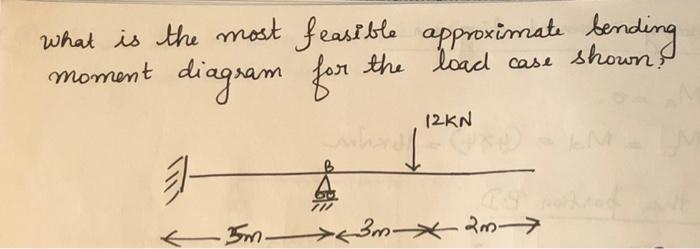 what is the most feasible approximate bending
moment diagram for the load case shown?
12KN
B
5m 3m 2m